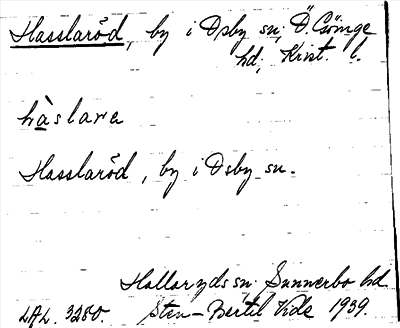 Hasslaröd, by i Osby sn; Ö. Göinge
hd; Krist. l.
hàslara
Hasslaröd, by i Osby sn.
Hallaryds sn. Sunnerbo hd
LAL. 3280. Sten-Bertil Vide 1939.